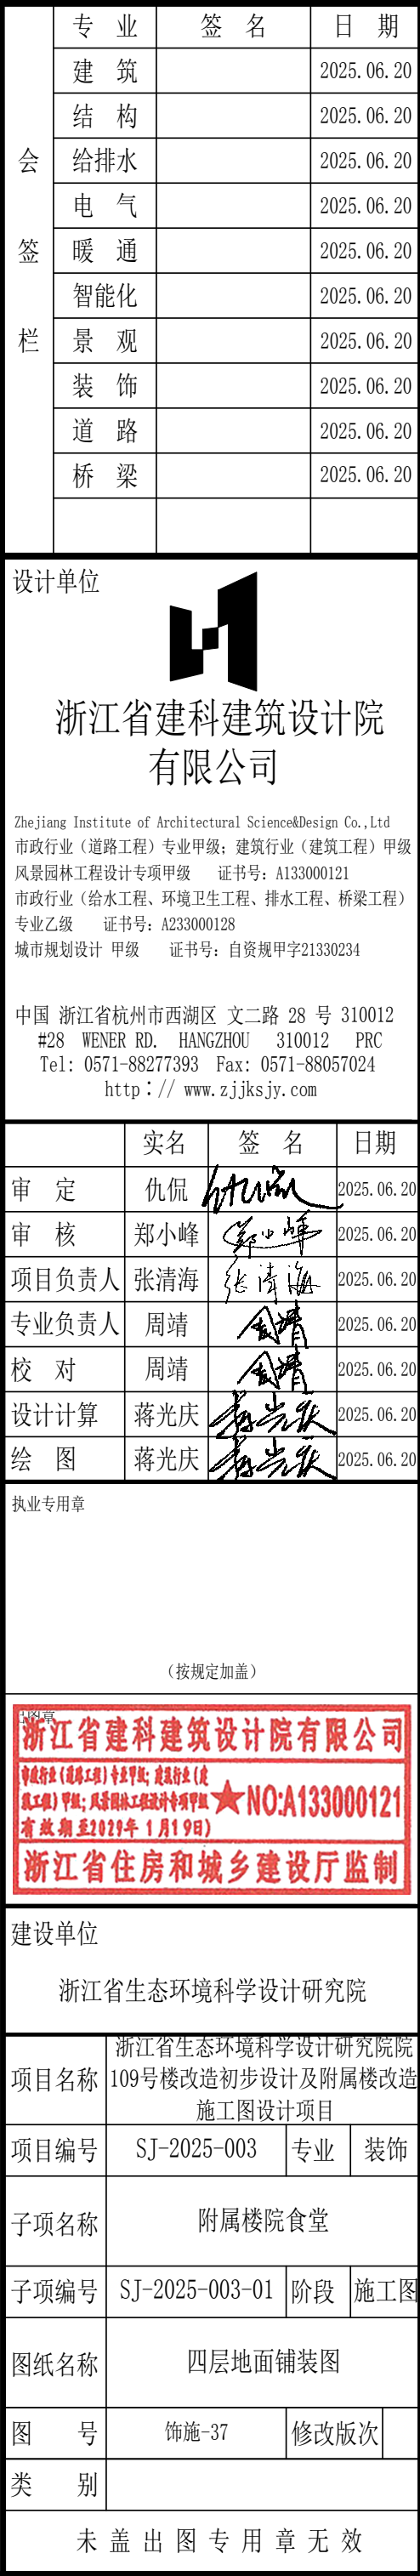 会签栏
专 业 签 名 日 期
建 筑 2025.06.20
结 构 2025.06.20
给排水 2025.06.20
电 气 2025.06.20
暖 通 2025.06.20
智能化 2025.06.20
景 观 2025.06.20
装 饰 2025.06.20
道 路 2025.06.20
桥 梁 2025.06.20
设计单位
浙江省建科建筑设计院
有限公司
Zhejiang Institute of Architectural Science&Design Co.,Ltd
市政行业（道路工程）专业甲级；建筑行业（建筑工程）甲级
风景园林工程设计专项甲级 证书号：A133000121
市政行业（给水工程、环境卫生工程、排水工程、桥梁工程）
专业乙级 证书号：A233000128
城市规划设计 甲级 证书号：自资规甲字21330234
中国 浙江省杭州市西湖区 文二路 28 号 310012
#28 WENER RD. HANGZHOU 310012 PRC
Tel: 0571-88277393 Fax: 0571-88057024
http：// www.zjjksjy.com
实名 签 名 日期
审 定 仇侃 仇侃 2025.06.20
审 核 郑小峰 郑小峰 2025.06.20
项目负责人 张清海 张清海 2025.06.20
专业负责人 周靖 周靖 2025.06.20
校 对 周靖 周靖 2025.06.20
设计计算 蒋光庆 蒋光庆 2025.06.20
绘 图 蒋光庆 蒋光庆 2025.06.20
执业专用章
（按规定加盖）
浙江省建科建筑设计院有限公司
市政行业(道路工程)专业甲级；建筑行业(建
筑工程)甲级；风景园林工程设计专项甲级
有效期至2029年1月19日)
NO:A133000121
浙江省住房和城乡建设厅监制
建设单位
浙江省生态环境科学设计研究院
项目名称
浙江省生态环境科学设计研究院院
109号楼改造初步设计及附属楼改造
施工图设计项目
项目编号 SJ-2025-003 专业 装饰
子项名称 附属楼院食堂
子项编号 SJ-2025-003-01 阶段 施工图
图纸名称 四层地面铺装图
图 号 饰施-37 修改版次
类 别
未盖出图专用章无效